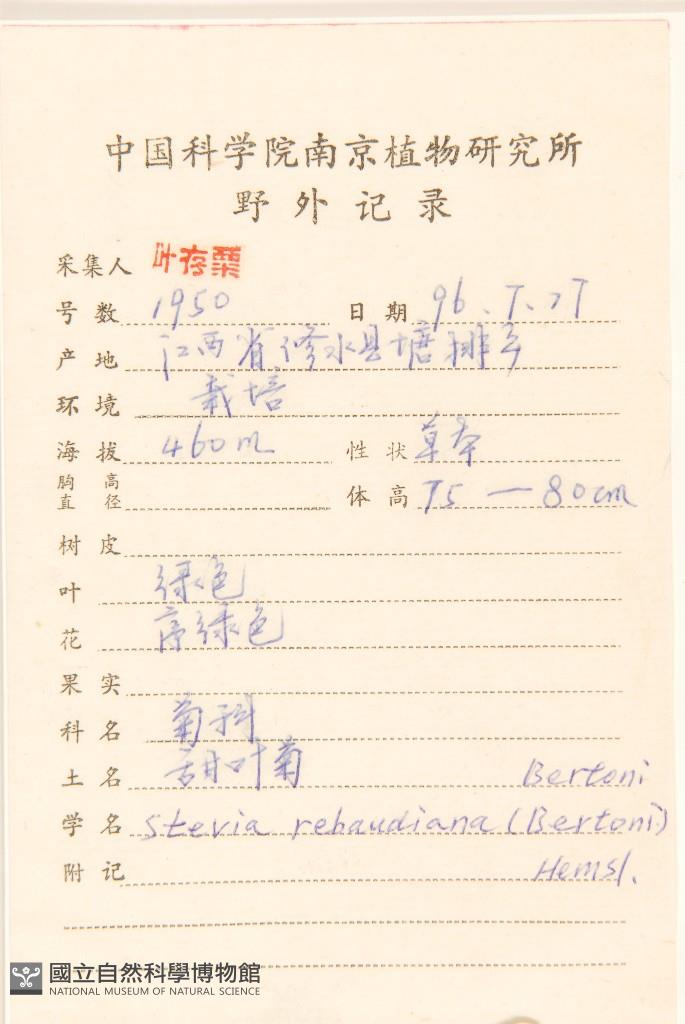 中国科学院南京植物研究所
野外记录
采集人 叶存粟
号数 1950 日期 96.7.27
产地 江西省修水县塘排乡
环境 栽培
海拔 460m 性状 草本
胸高直径 体高 75—80cm
树皮
叶 绿色
花 序绿色
果实
科名 菊科
土名 甜叶菊 Bertoni
学名 Stevia rebaudiana (Bertoni)
附记 Hemsl.
國立自然科學博物館
NATIONAL MUSEUM OF NATURAL SCIENCE